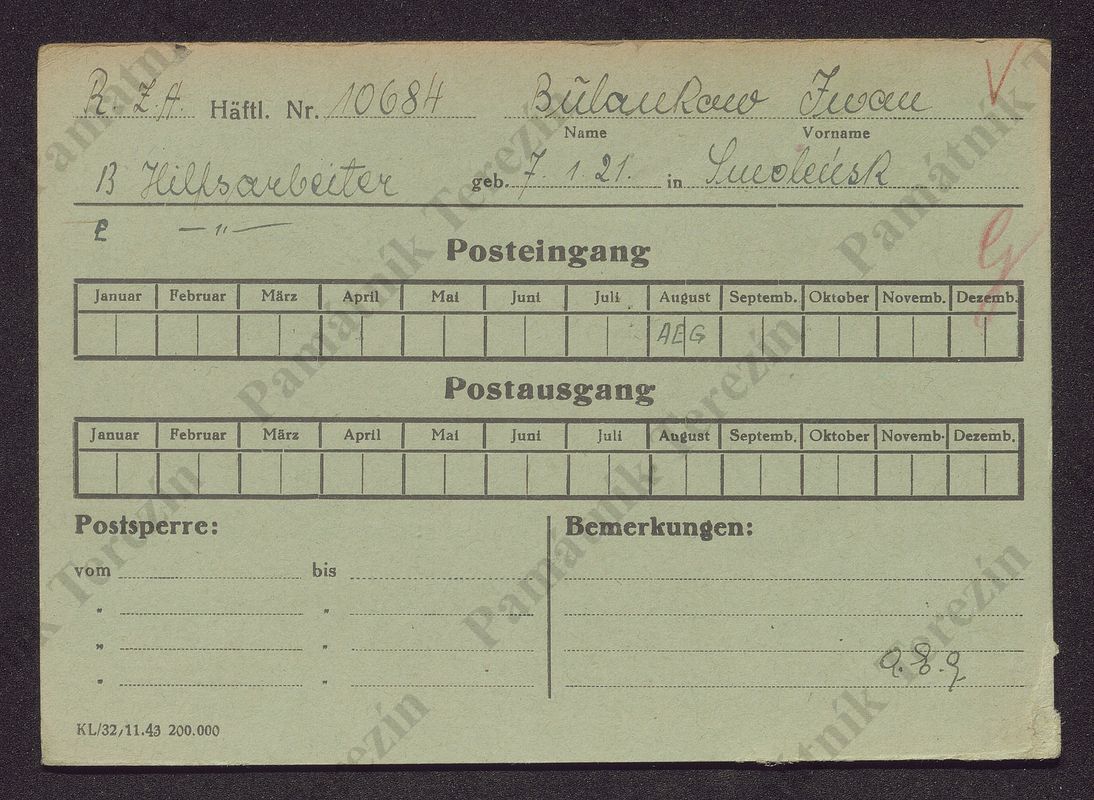 R. Z. A. Häftl. Nr. 10684 Bülankow Iwan
Name Vorname
B Hilfsarbeiter geb. 7. 1. 21. in Smoleńsk
E — " —
Posteingang
Januar Februar März April Mai Juni Juli August Septemb. Oktober Novemb. Dezemb.
AEG
Postausgang
Januar Februar März April Mai Juni Juli August Septemb. Oktober Novemb. Dezemb.
Postsperre: Bemerkungen:
vom bis
" "
" "
" "
a.E.g
KL/32/11.43 200.000
Památník Terezín